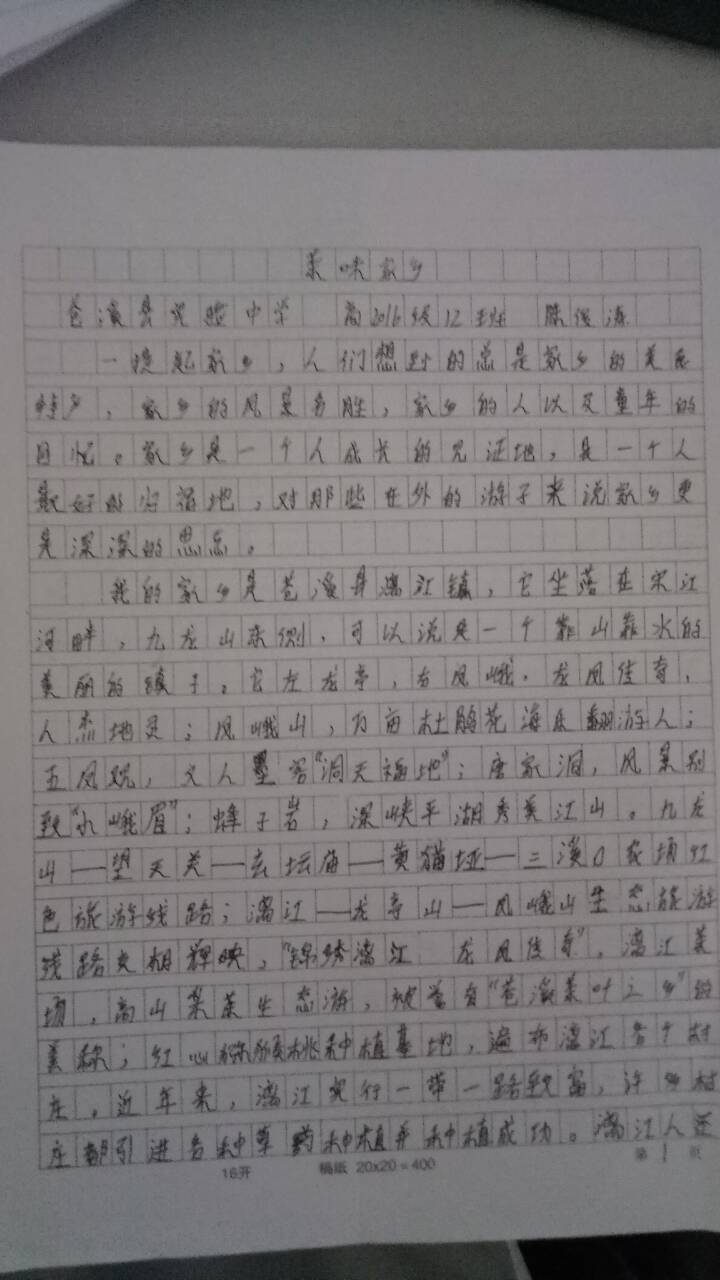 美味家乡
苍溪县实验中学 高2016级12班 陈俊涛
一提起家乡，人们想到的总是家乡的美食
特产，家乡的风景名胜，家乡的人以及童年的
回忆。家乡是一个人成长的见证地，是一个人
最好的居住地，对那些在外的游子来说家乡更
是深深的思念。
我的家乡是苍溪县漓江镇，它坐落在宋江
河畔，九龙山东侧，可以说是一个靠山靠水的
美丽的镇子。它左龙亭，右凤峨，龙凤佳奇，
人杰地灵；凤峨山，万亩杜鹃花海乐翻游人；
五凤观，文人墨客“洞天福地”；唐家洞，风景别
致“小峨眉”；蜂子岩，深峡平湖秀美江山。九龙
山——望天关——玄坛庙——黄猫垭——三溪口农场红
色旅游线路；漓江——龙亭山——凤峨山生态旅游
线路交相辉映，“锦绣漓江 龙凤佳奇”，漓江茶
场，高山采茶生态游，被誉有“苍溪茶叶之乡”的
美称；红心猕猴桃种植基地，遍布漓江各个村
庄。近年来，漓江实行一带一路致富，许多村
庄都引进各种草药种植并种植成功。漓江人还
16开 稿纸 20x20=400 第1页